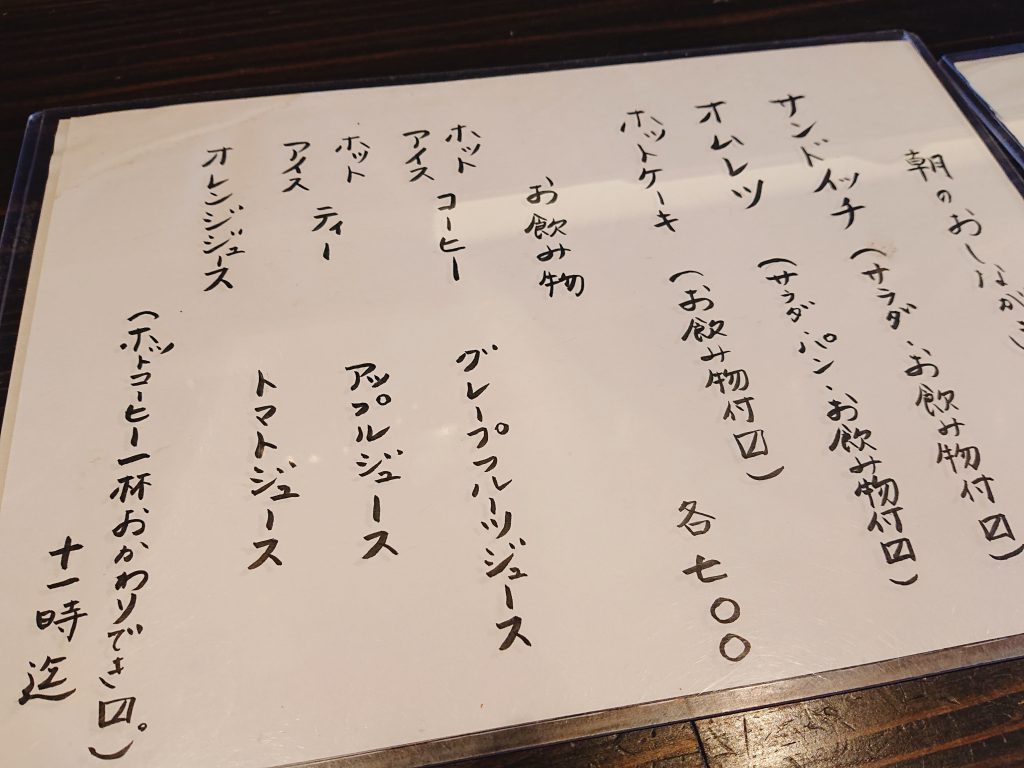 朝のおしながき
サンドイッチ（サラダ・お飲み物付〼）
オムレツ（サラダ・パン・お飲み物付〼）
ホットケーキ（お飲み物付〼）
各七〇〇
お飲み物
ホット
アイス
コーヒー
グレープフルーツジュース
ホット
アイス
ティー
アップルジュース
オレンジジュース
トマトジュース
（ホットコーヒー一杯おかわりでき〼。）
十一時迄